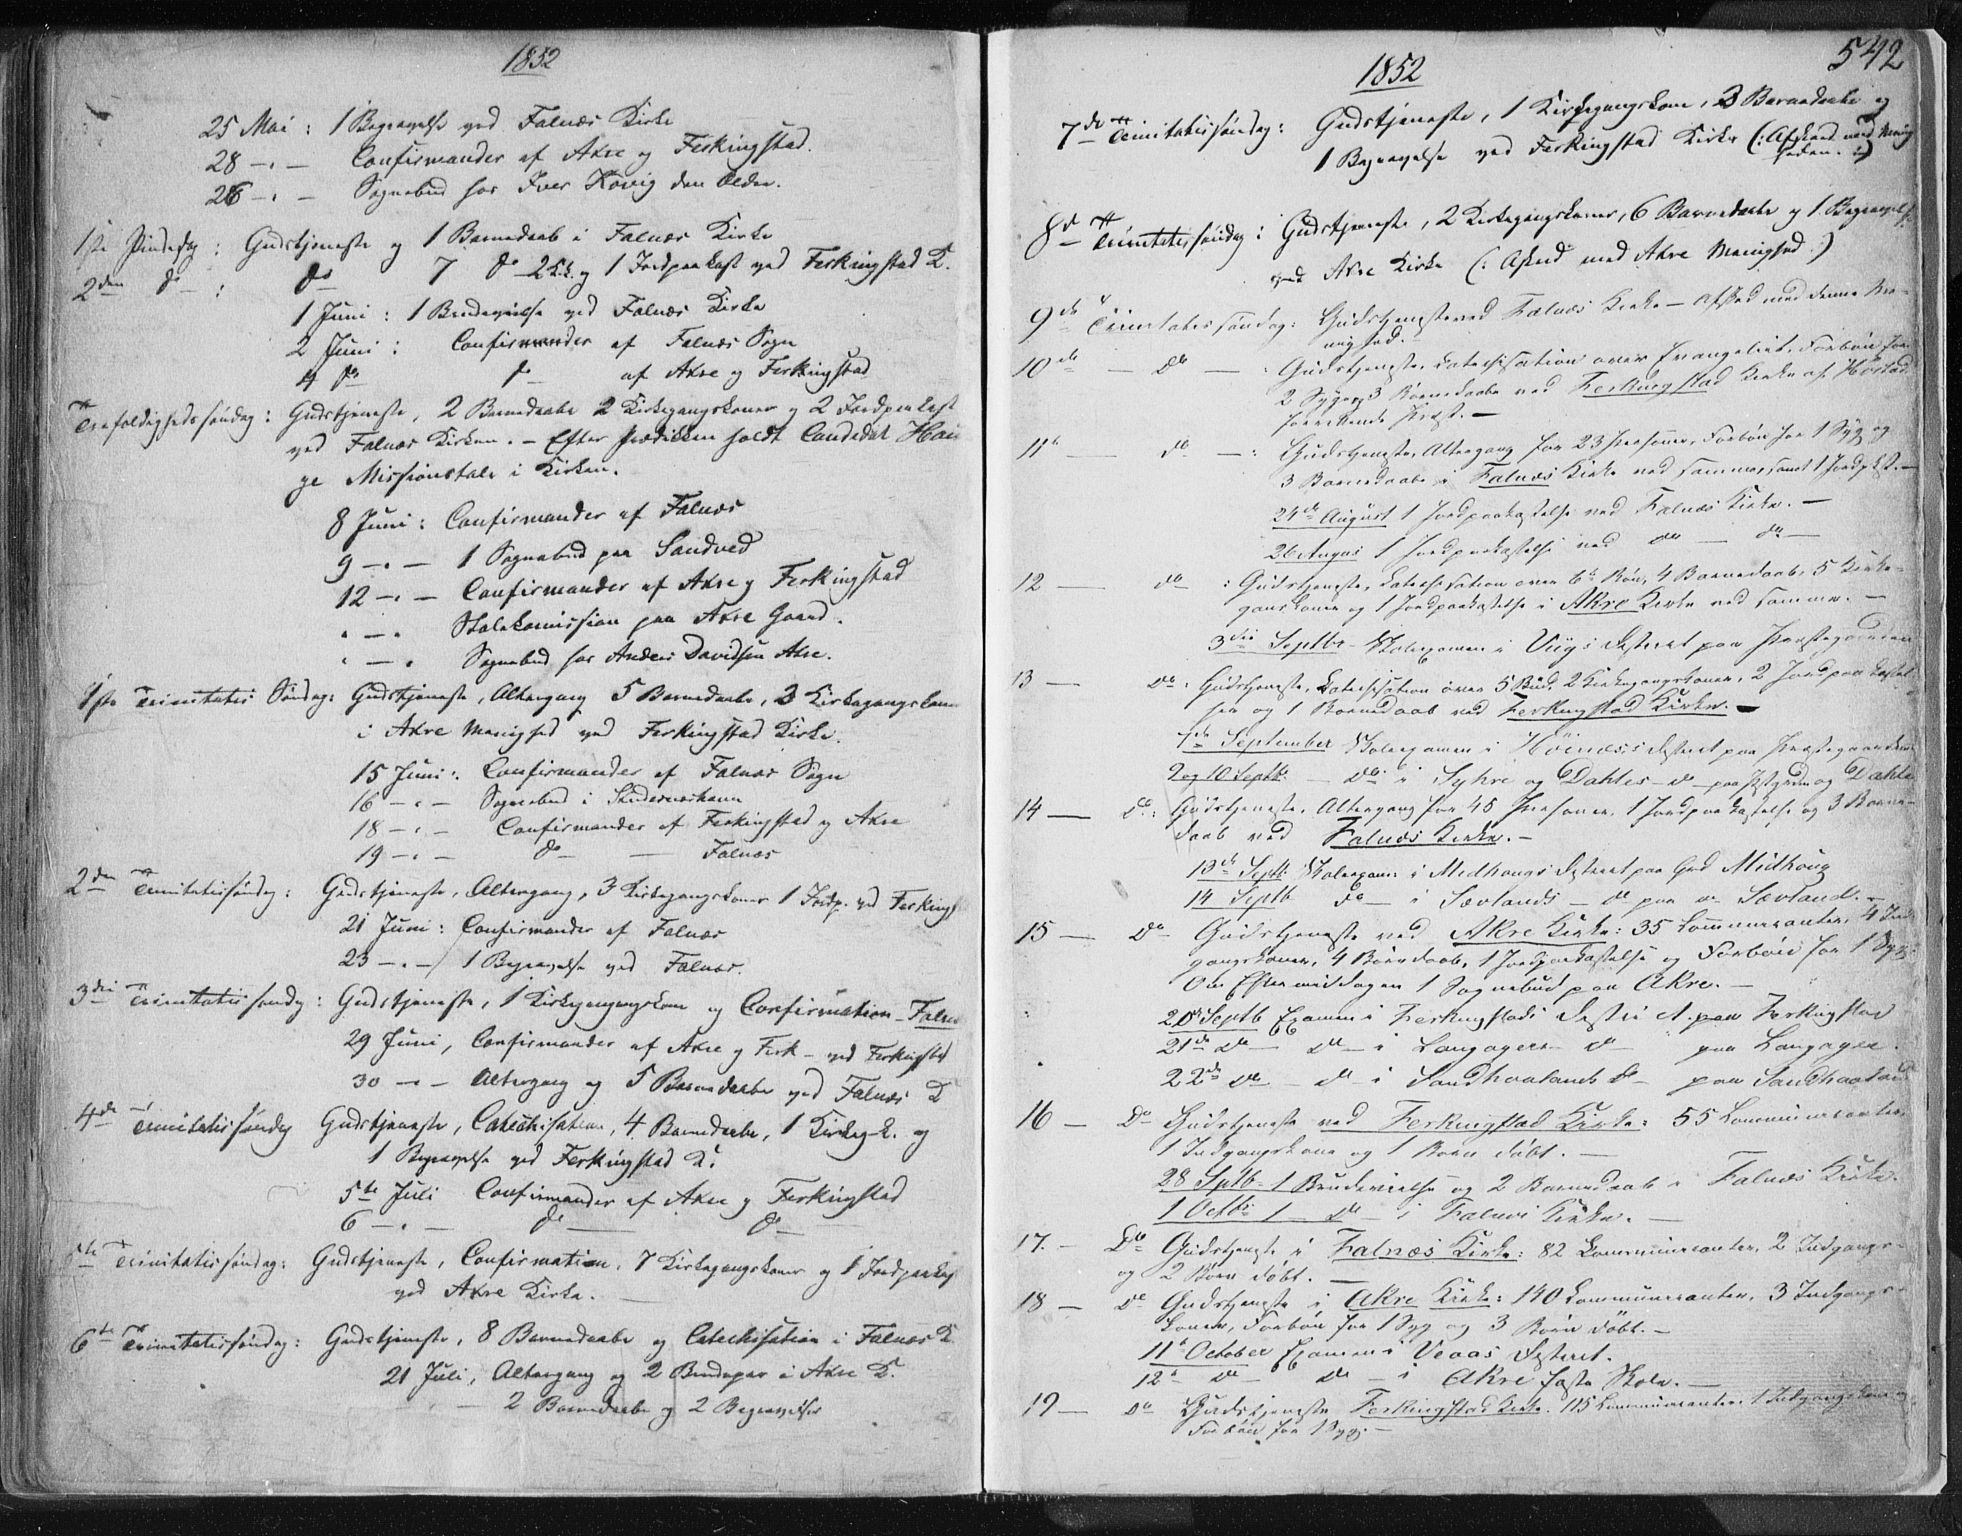 1852
25 Mai : 1 Begravelse ved Falnæs Kirke
28 -„- Confirmander af Akre og Ferkingstad.
26 -„- Sognebud hos Iver Hovig den Ældre.
1ste Pindsedag : Gudstjeneste og 1 Barnedaab i Falnæs Kirke
2den do : do 7 do 2 K.k. og 1 Jordpaakast ved Ferkingstad K.
1 Juni : 1 Brudevielse ved Falnæs Kirke
2 Juni : Confirmander af Falnæs Sogn
4 do do af Akre og Ferkingstad
Trefoldighedssøndag : Gudstjeneste, 2 Barnedaabe 2 Kirkegangskoner og 2 Jordpaakast
ved Falnæs Kirken. - Efter Prædikken holdt Candidat Hau
ge Missionstale i Kirken.
8 Juni : Confirmander af Falnæs
9 -„- 1 Sognebud paa Sandved
12 -„- Confirmander af Akre og Ferkingstad
„ - „ Skolekomission paa Akre Gaard.
„ - „ Sognebud hos Anders Davidsen Akre.
1ste Trinitatis Søndag: Gudstjeneste, Altergang 5 Barnedaabe, 3 Kirkegangskone
i Akre Menighed ved Ferkingstad Kirke.
15 Juni : Confirmander af Falnæs Sogn
16 -„- Sognebud i Skudesnæshavn
18 -„- Confirmander af Ferkingstad og Akre
19 -„- do — Falnæs
2den Trinitatissøndag : Gudstjeneste, Altergang, 3 Kirkegangskoner 1 Jordp. ved Ferkings
21 Juni : Confirmander af Falnæs
23 -„- 1 Begravelse ved Falnæs.
3die Trinitatissøndg : Gudstjeneste, 1 Kirkegangskone og Confirmation - Falnæ
29 Juni, Confirmander af Akre og Ferk - ved Ferkingstad
30 -„- Altergang og 5 Barnedaabe ved Falnæs K
4de Trinitatissøndag Gudstjeneste, Catechisation, 4 Barnedaabe, 1 Kirkeg-k. og
1 Begravelse ved Ferkingstad K.
5te Juli Confirmander af Akre og Ferkingstad
6 -„- do — do —
5te Trinitatissøndag: Gudstjeneste, Confirmation, 7 Kirkegangskoner og 1 Jordpaakas
ved Akre Kirke.
6te Trinitatissøndag: Gudstjeneste, 8 Barnedaabe og Catechisation i Falnæs K
21 Juli, Altergang og 2 Brudepar i Akre K.
2 Barnedaabe og 2 Begravelser
542
1852
7de Trinitatissøndag: Gudstjeneste, 1 Kirkegangskone, 3 Barnedaabe og
1 Begravelse ved Ferkingstad Kirke (: Afsked med Menig
heden. :)
8de Trinitatissøndag : Gudstjeneste, 2 Kirkegangskoner, 6 Barnedaabe og 1 Begravelse
ved Akre Kirke (: Afsked med Akre Menighed :)
9de Trinitatissøndag: Gudstjeneste ved Falnæs Kirke - Afsked med denne Me-
nighed.
10de — do — : Gudstjeneste, Catechisation over Evangeliet, Forbøn for
2 Syge, 3 Børnedaabe ved Ferkingstad Kirke af Høstad
forrettende Præst. —
11te — do — : Gudstjeneste, Altergang for 23 Personer, Forbøn for 1 Syg og
3 Barnedaabe i Falnæs Kirke ved samme, samt 1 Jordpkst. —
24de August 1 Jordpaakastelse ved Falnæs Kirke. —
26 Augus 1 Jordpaakastelse ved do — do —
12 — do : Gudstjeneste, Catechisation over 6te Bøn, 4 Barnedaab, 5 Kirke-
gangskoner og 1 Jordpaakastelse i Akre Kirke ved samme. —
3die Septbr Skoleexamen i Viigs District paa Præstegaarden
13 — do : Gudstjeneste, Catechisation over 5 Bud, 2 Kirkegangskoner, 2 Jordpaakastel-
ser og 1 Barnedaab ved Ferkingstad Kirke. —
September Skoleexamen i Høinæss District paa Præstegaarden
9 og 10 Septb: — do i Syhre og Dahles - do - paa Præstgrdn og Dahle
14 — do : Gudstjeneste, Altergang for 45 Personer, 1 Jordpaakastelse og 3 Barne-
daab ved Falnæs Kirke. —
13de Septb Skoleexam: i Medhaugs District paa Grd Midhoug
14 Septb do — i Sævlands — do paa do Sævland. —
15 — do Gudstjeneste ved Akre Kirke : 35 Communicanter, 4 Ind-
gangskoner, 4 Børnedaab, 1 Jordpaakastelse og Forbøn for 1 Syg.
Om Eftermiddagen 1 Sognebud paa Akre. —
20de Septb Examen i Ferkingstads District paa Ferkingstad
21de do do — i Langagers do — paa Langager.
22de do do i Sandhaalands do — paa Sandhaaland
16 — do Gudstjeneste ved Ferkingstad Kirke : 55 Communicanter,
1 Indgangskone og 1 Barn døbt. —
28 Sptb - 1 Brudevielse og 2 Barnedaab i Falnæs Kirke.
1 Octbr 1 — do — i Falnæs Kirke. —
17. — do Gudstjeneste i Falnæs Kirke : 82 Communicanter, 2 Indgangs-
og 2 Børn døbt. —
18 — do Gudstjeneste i Akre Kirke : 140 Communicanter, 3 Indgangs-
koner, Forbøn for 1 Syg og 3 Børn døbt. —
11te October Examen i Veaas District.
12te do do — i Akre faste Skole. —
19 — do Gudstjeneste Ferkingstad Kirke. 115 Communicanter, 1 Indgangskone og
Forbøn for 1 Syg. —